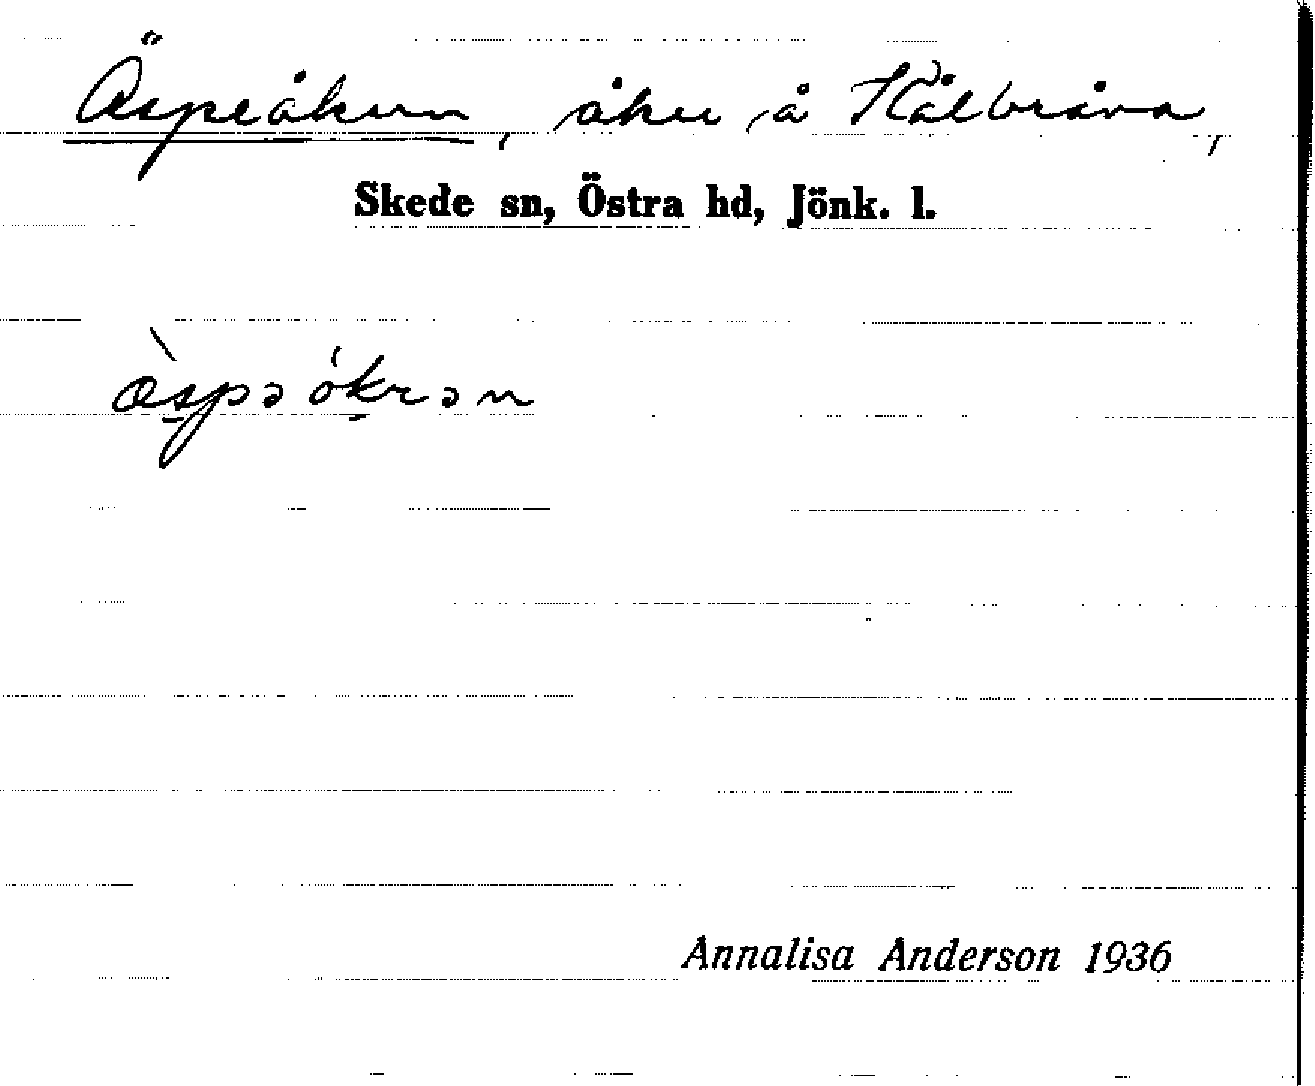 Äspeåkern, åker å Kålbråna,
Skede sn, Östra hd, Jönk. l.
æ̀spə ókrən
Annalisa Anderson 1936